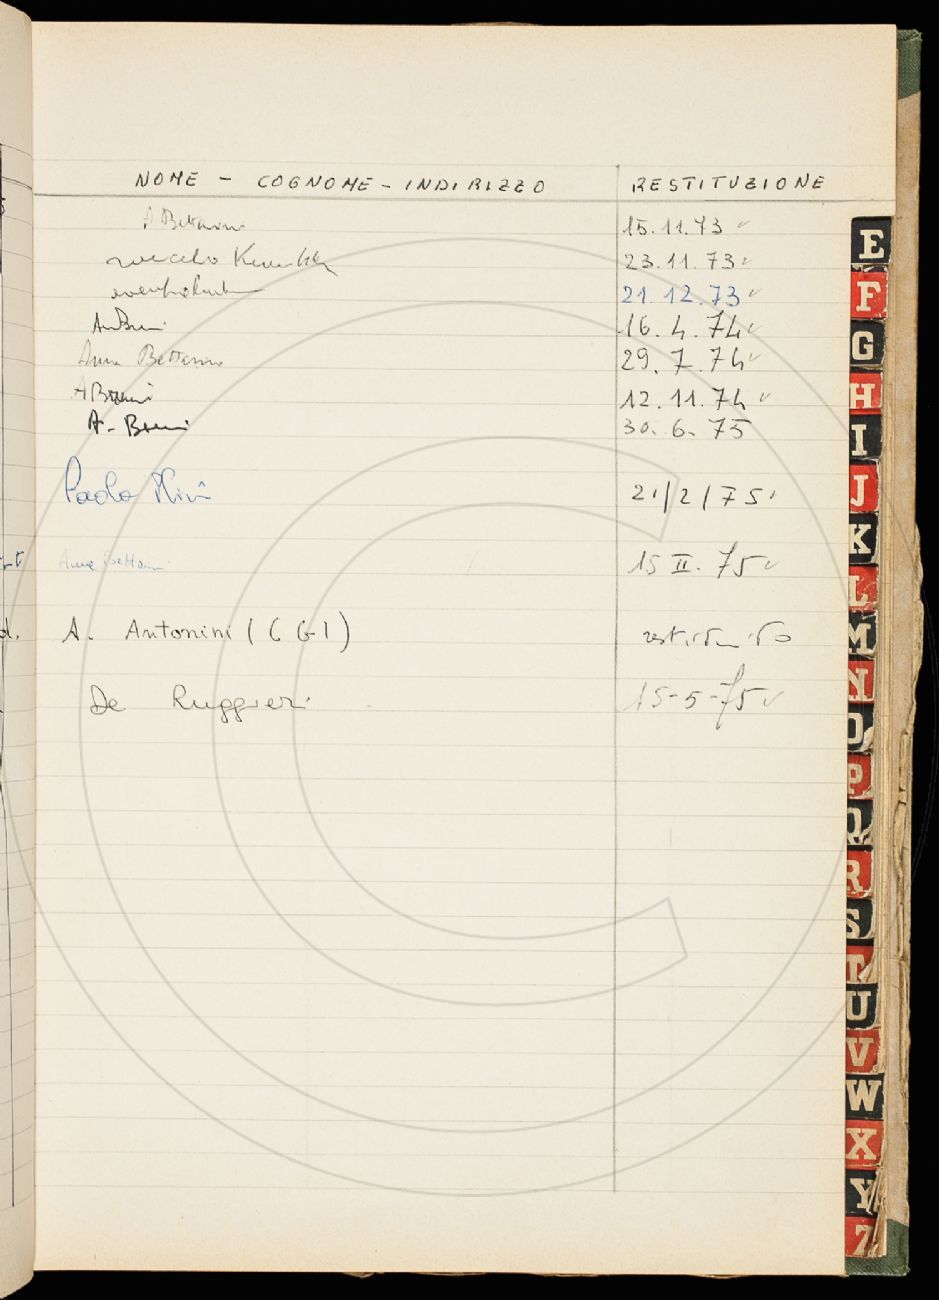 NOME - COGNOME - INDIRIZZO RESTITUZIONE
A Bettarini 15.11.73 ✓
23.11.73 ✓
21.12.73 ✓
16.4.74 ✓
Anna Bettarini 29.7.74 ✓
A Bruni 12.11.74 ✓
A. Bruni 30.6.75
Paolo 21/2/75
Anna Bettarini 15 II. 75 ✓
A. Antonini (CGI) restituito
De Ruggieri 15-5-75 ✓
E
F
G
H
I
J
K
L
M
N
O
P
Q
R
S
T
U
V
W
X
Y
Z